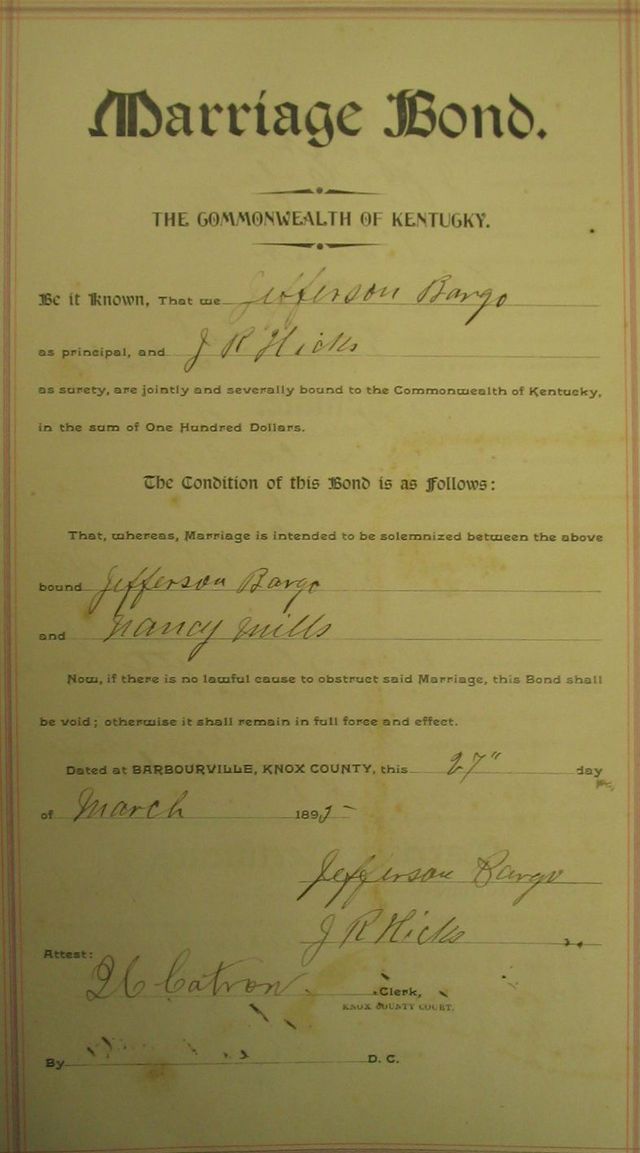 Marriage Bond.
THE COMMONWEALTH OF KENTUCKY.
Be it Known, That we Jefferson Bargo
as principal, and J R Hicks
as surety, are jointly and severally bound to the Commonwealth of Kentucky,
in the sum of One Hundred Dollars.
The Condition of this Bond is as Follows:
That, whereas, Marriage is intended to be solemnized between the above
bound Jefferson Bargo
and Nancy Mills
Now, if there is no lawful cause to obstruct said Marriage, this Bond shall
be void; otherwise it shall remain in full force and effect.
Dated at BARBOURVILLE, KNOX COUNTY, this 27" day
of March 1895
Jefferson Bargo
J R Hicks
Attest:
Catron Clerk,
KNOX COUNTY COURT.
By D. C.